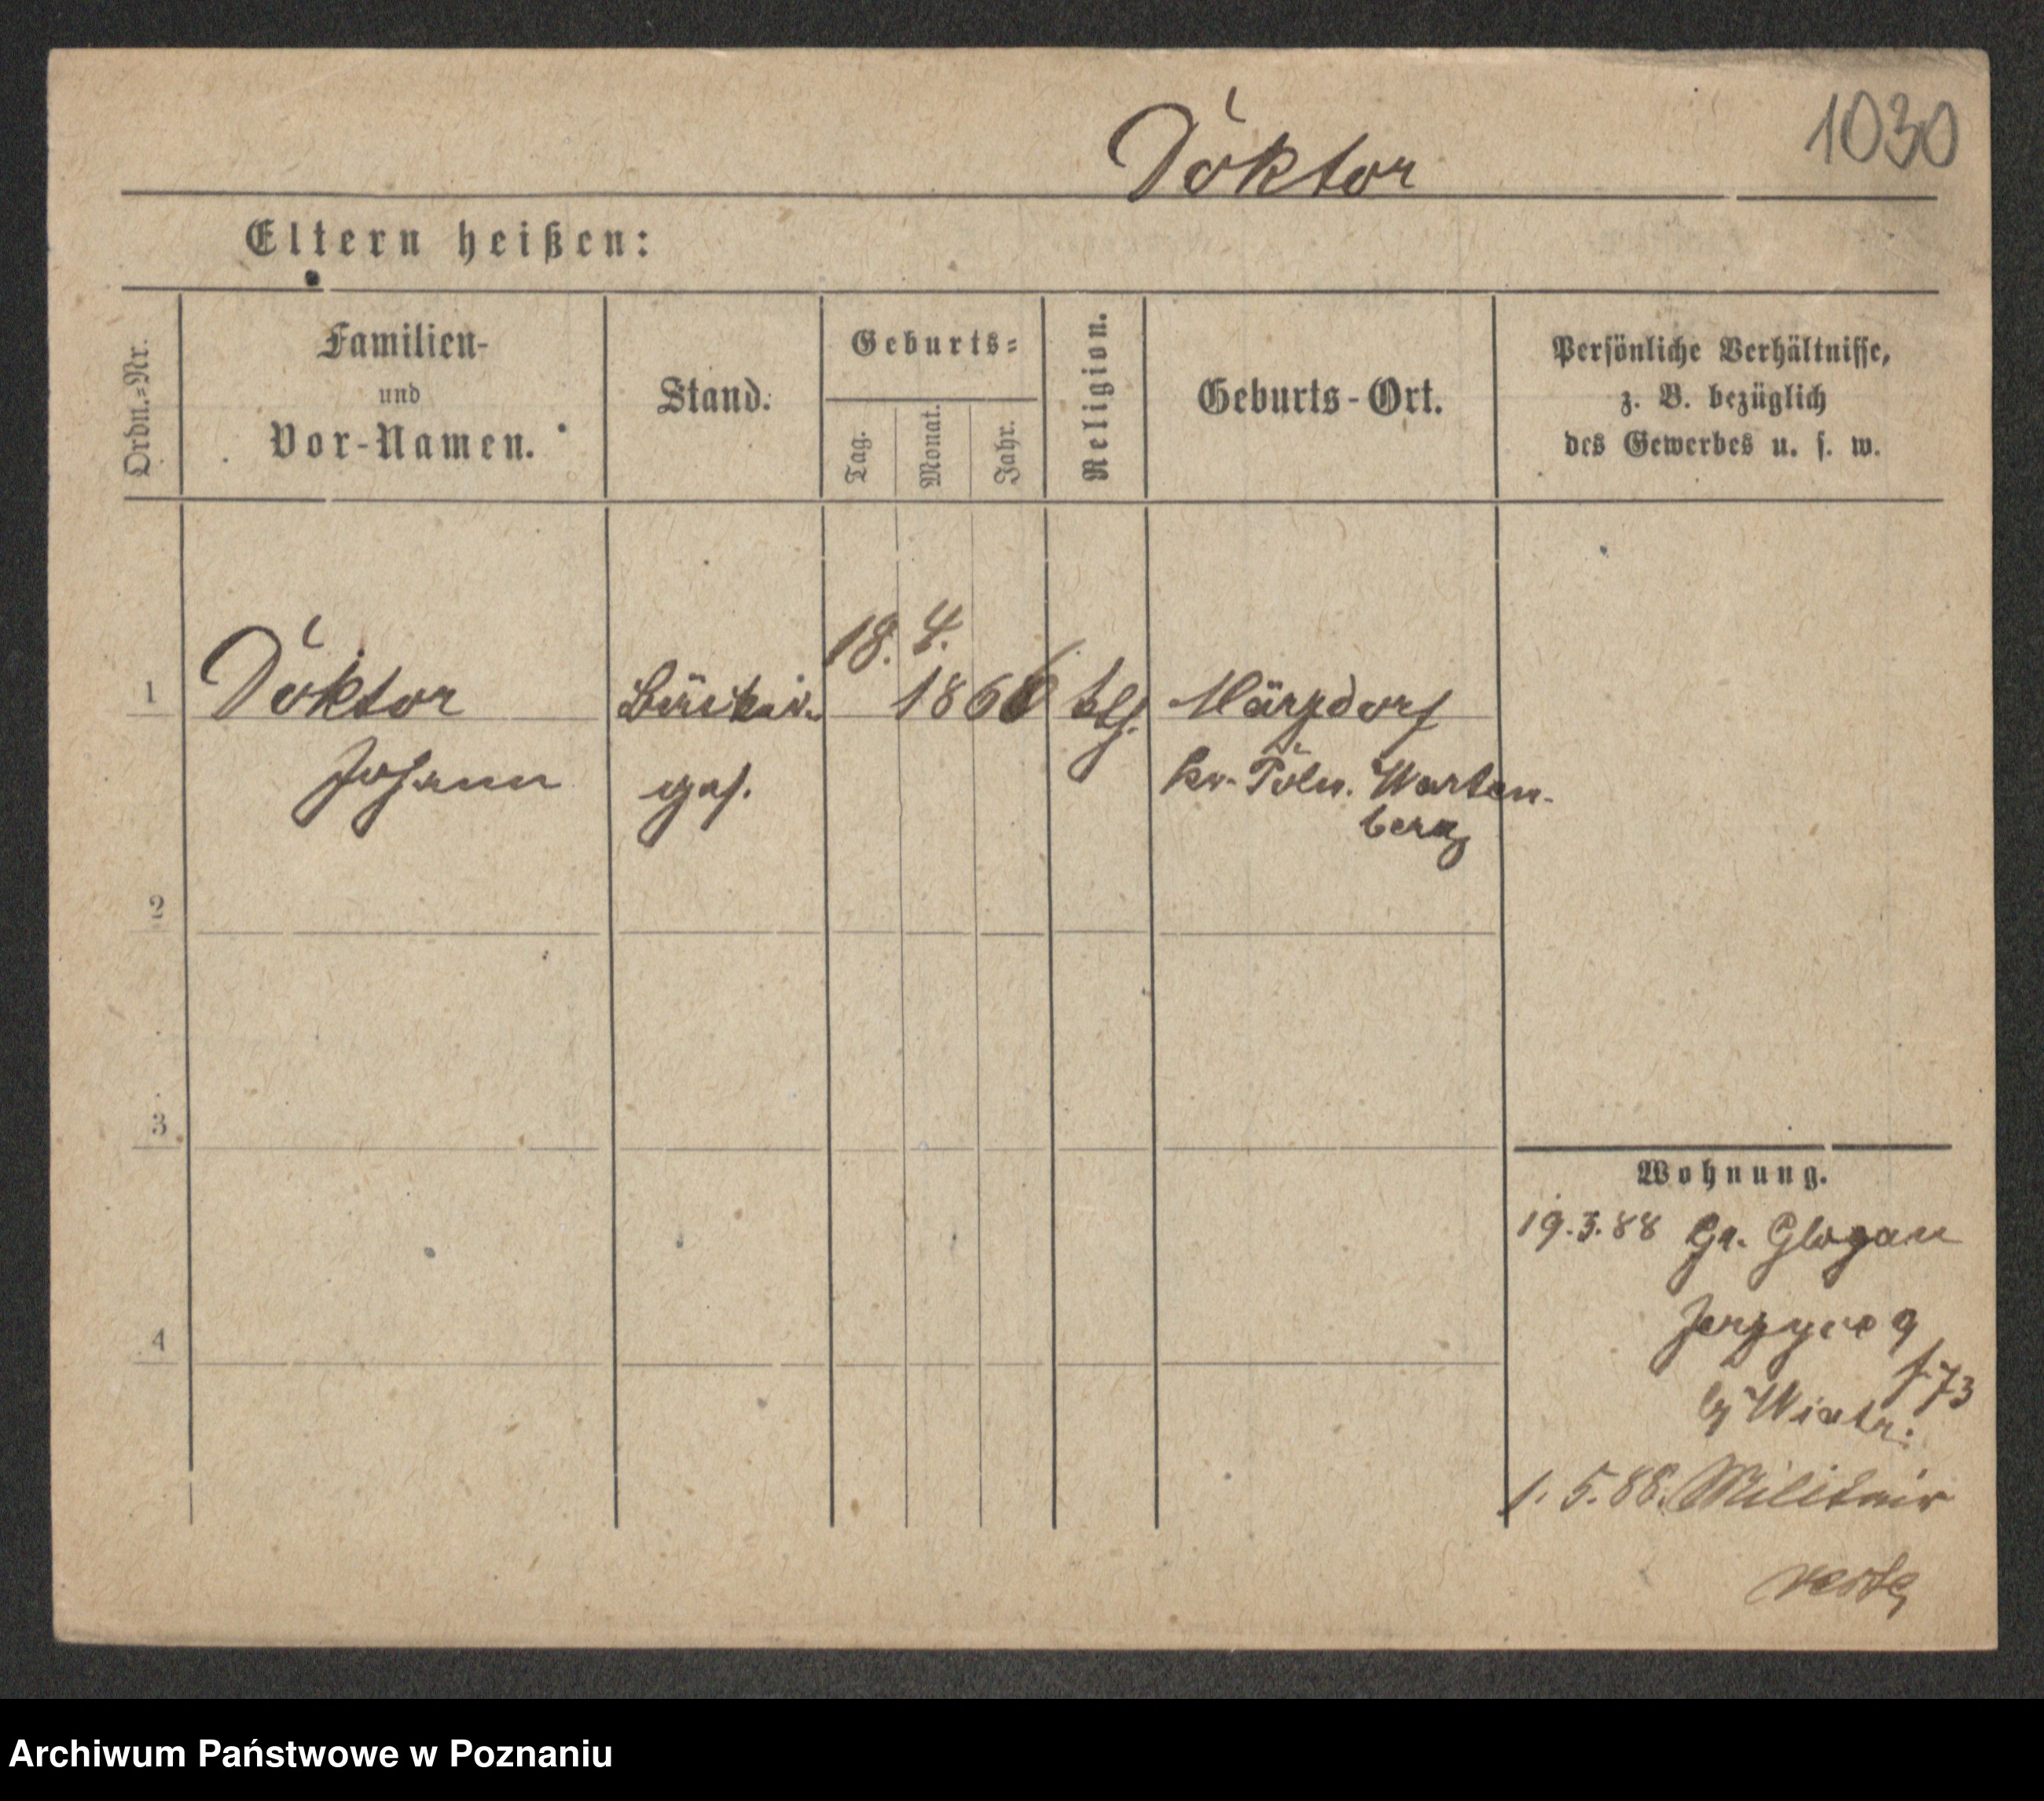 Doktor
1030
Eltern heißen:
Ordn.=Nr.
Familien-
und
Vor-Namen.
Stand.
Geburts=
Tag.
Monat.
Jahr.
Religion.
Geburts-Ort.
Persönliche Verhältnisse,
z. B. bezüglich
des Gewerbes u. s. w.
18. 4.
1 Doktor 1866 kth. Märzdorf
Johann Kr. Poln. Warten-
berg
2
3
4
Wohnung.
19.3.88 Gr. Glogau
Jerzyce 9
f. 73
1. 5. 88. Militair
Archiwum Państwowe w Poznaniu